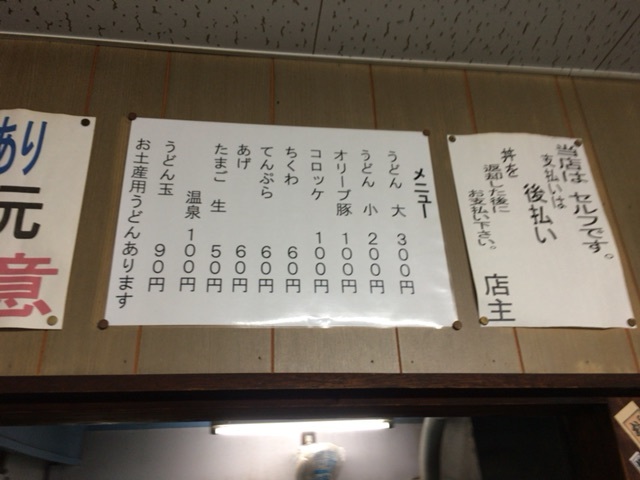 当店は セルフです。
支払いは
後払い
丼を
返却した後に
お支払い下さい。
店主
メニュー
うどん 大 300円
うどん 小 200円
オリーブ豚 100円
コロッケ 100円
ちくわ 60円
てんぷら 60円
あげ 60円
たまご 生 50円
温泉 100円
うどん玉 90円
お土産用うどんあります
あり
元
意